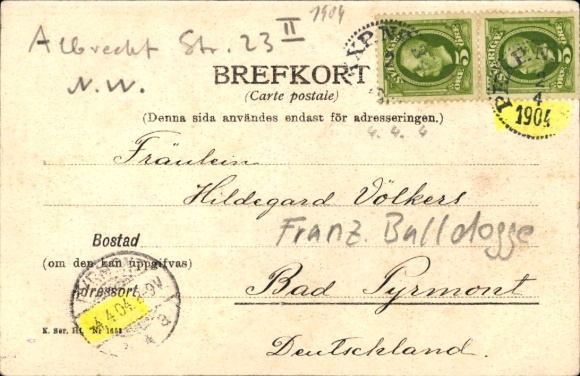 1904
Albrecht Str. 23 II
N.W.
BREFKORT
(Carte postale)
(Denna sida användes endast för adresseringen.)
4. 4. 4
1904
Fräulein
Hildegard Völkers
Franz. Bulldogge
Bostad
(om den kan uppgifvas)
Bad Pyrmont
Adressort
4.4.04.
K. Ser. III. Nr
Deutschland.